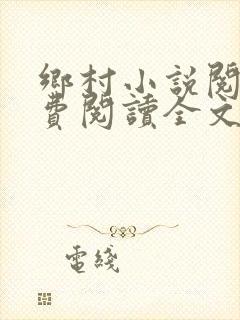 鄉村小説閱
費閱讀全文
電綫